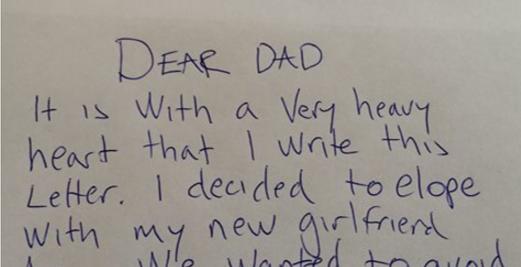 DEAR DAD
It is With a Very heavy
heart that I write this
Letter. I decided to elope
With my new girlfriend
We wanted to avoid